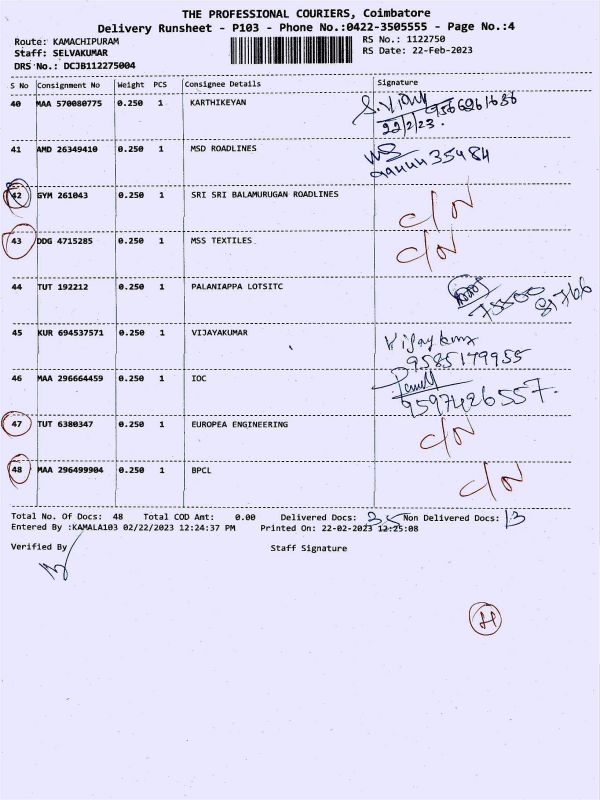 THE PROFESSIONAL COURIERS, Coimbatore
Delivery Runsheet - P103 - Phone No.:0422-3505555 - Page No.:4
Route: KAMACHIPURAM RS No.: 1122750
Staff: SELVAKUMAR RS Date: 22-Feb-2023
DRS No.: DCJB112275004
S No Consignment No Weight PCS Consignee Details Signature
40 MAA 570080775 0.250 1 KARTHIKEYAN
22/2/23.
41 AMD 26349410 0.250 1 MSD ROADLINES
42 GYM 261043 0.250 1 SRI SRI BALAMURUGAN ROADLINES C/N
43 DDG 4715285 0.250 1 MSS TEXTILES C/N
44 TUT 192212 0.250 1 PALANIAPPA LOTSITC
45 KUR 694537571 0.250 1 VIJAYAKUMAR
9585179955
46 MAA 296664459 0.250 1 IOC
9597426557.
47 TUT 6380347 0.250 1 EUROPEA ENGINEERING C/N
48 MAA 296499904 0.250 1 BPCL C/N
Total No. Of Docs: 48 Total COD Amt: 0.00 Delivered Docs: 35 Non Delivered Docs: 13
Entered By :KAMALA103 02/22/2023 12:24:37 PM Printed On: 22-02-2023 12:25:08
Verified By Staff Signature